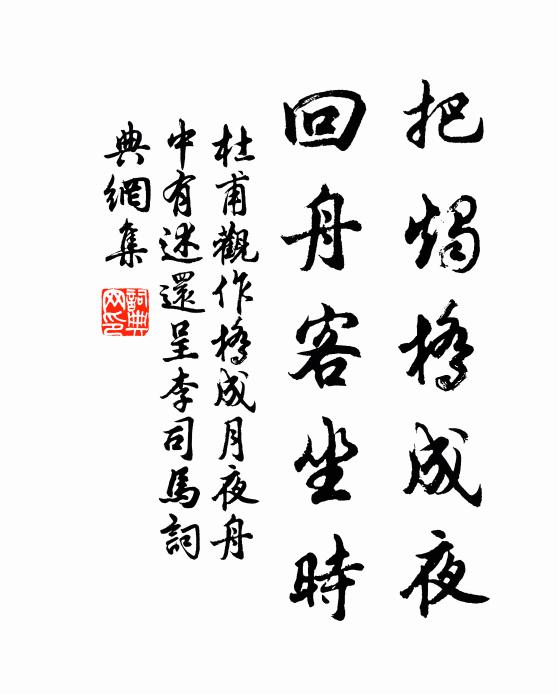 把燭橋成夜
回舟客坐時
杜甫觀作橋成月夜舟
中有述還呈李司馬詞
典網集
詞典
网印